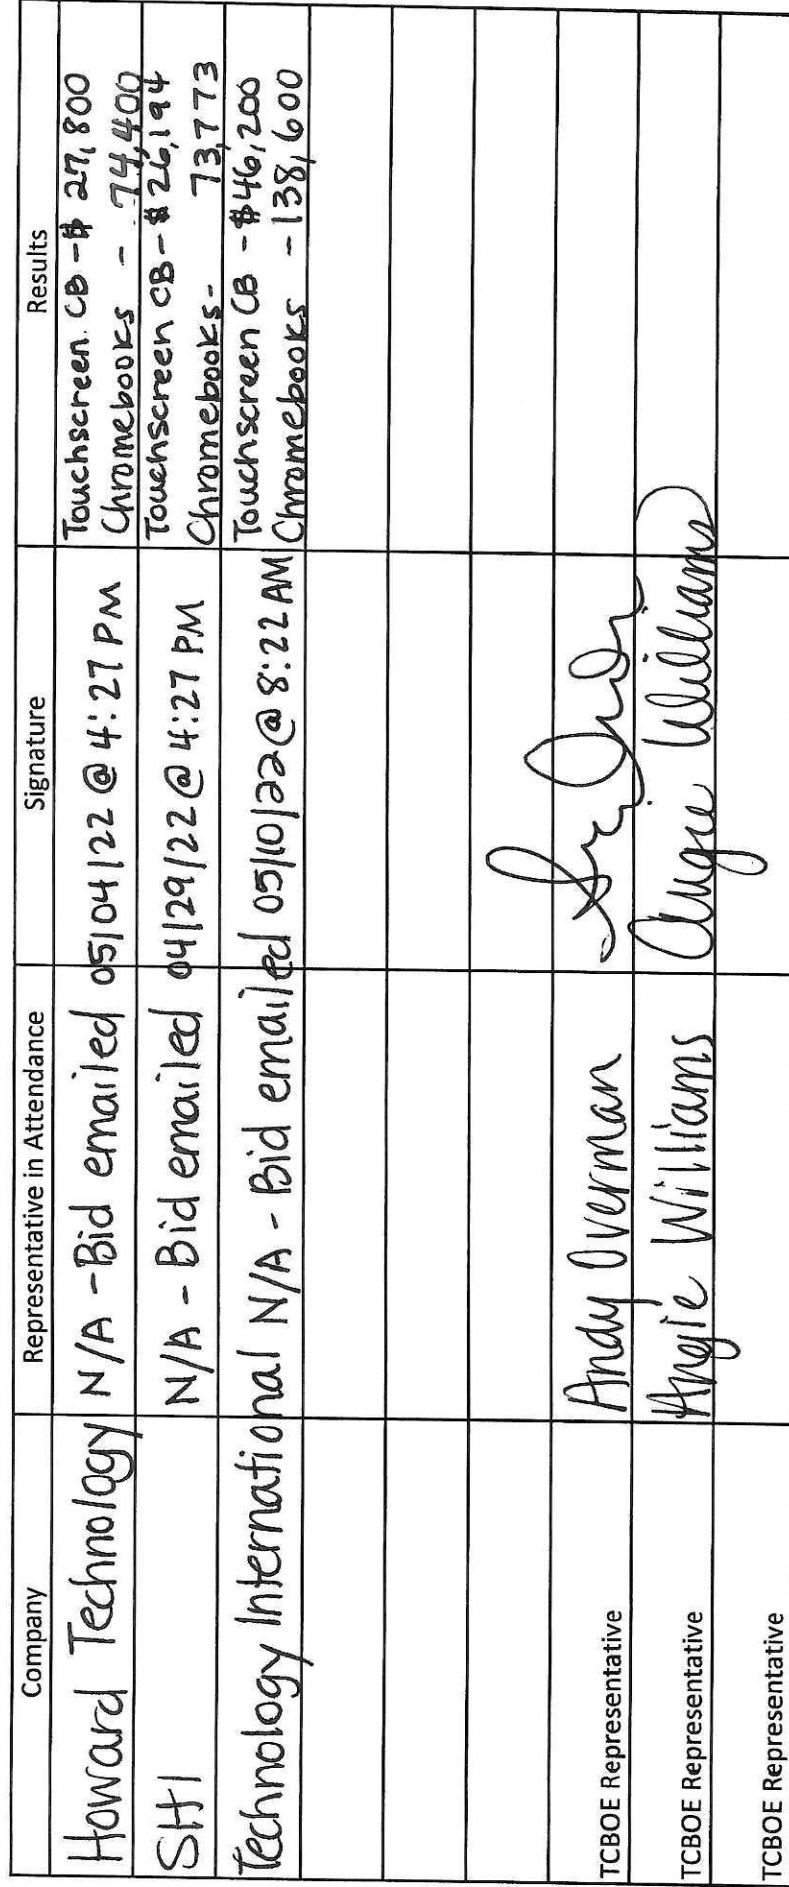 Company Representative in Attendance Signature Results
Howard Technology N/A - Bid emailed 05/04/22 @ 4:27 PM Touchscreen CB - $ 27,800
Chromebooks - 74,400
SHI N/A - Bid emailed 04/29/22 @ 4:27 PM Touchscreen CB - $ 26,194
Chromebooks - 73,773
Technology International N/A - Bid emailed 05/10/22 @ 8:22 AM Touchscreen CB - $46,200
Chromebooks - 138,600
TCBOE Representative Andy Overman
TCBOE Representative Angie Williams Angie Williams
TCBOE Representative